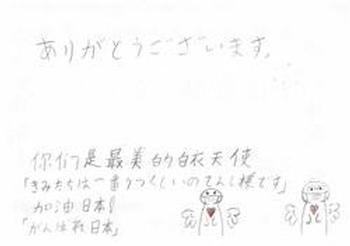 ありがとうございます。
你们是最美的白衣天使
「きみたちは一番うつくしいのてんし様です」
加油日本!
「がんばれ日本」